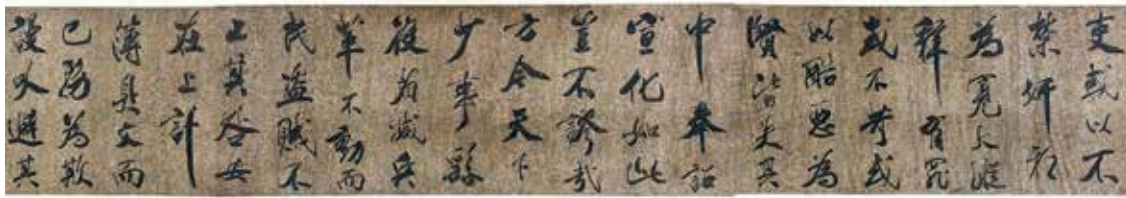 吏或以不
禁奸邪
為寬大縱
釋有罪
或不苛或
以酷惡為
賢皆失其
中奉詔
宣化如此
豈不謬哉
方今天下
少事繇
役省減兵
革不動而
民盜賊不
止其咎安
在上計
簿具文而
已務為欺
謾以避其